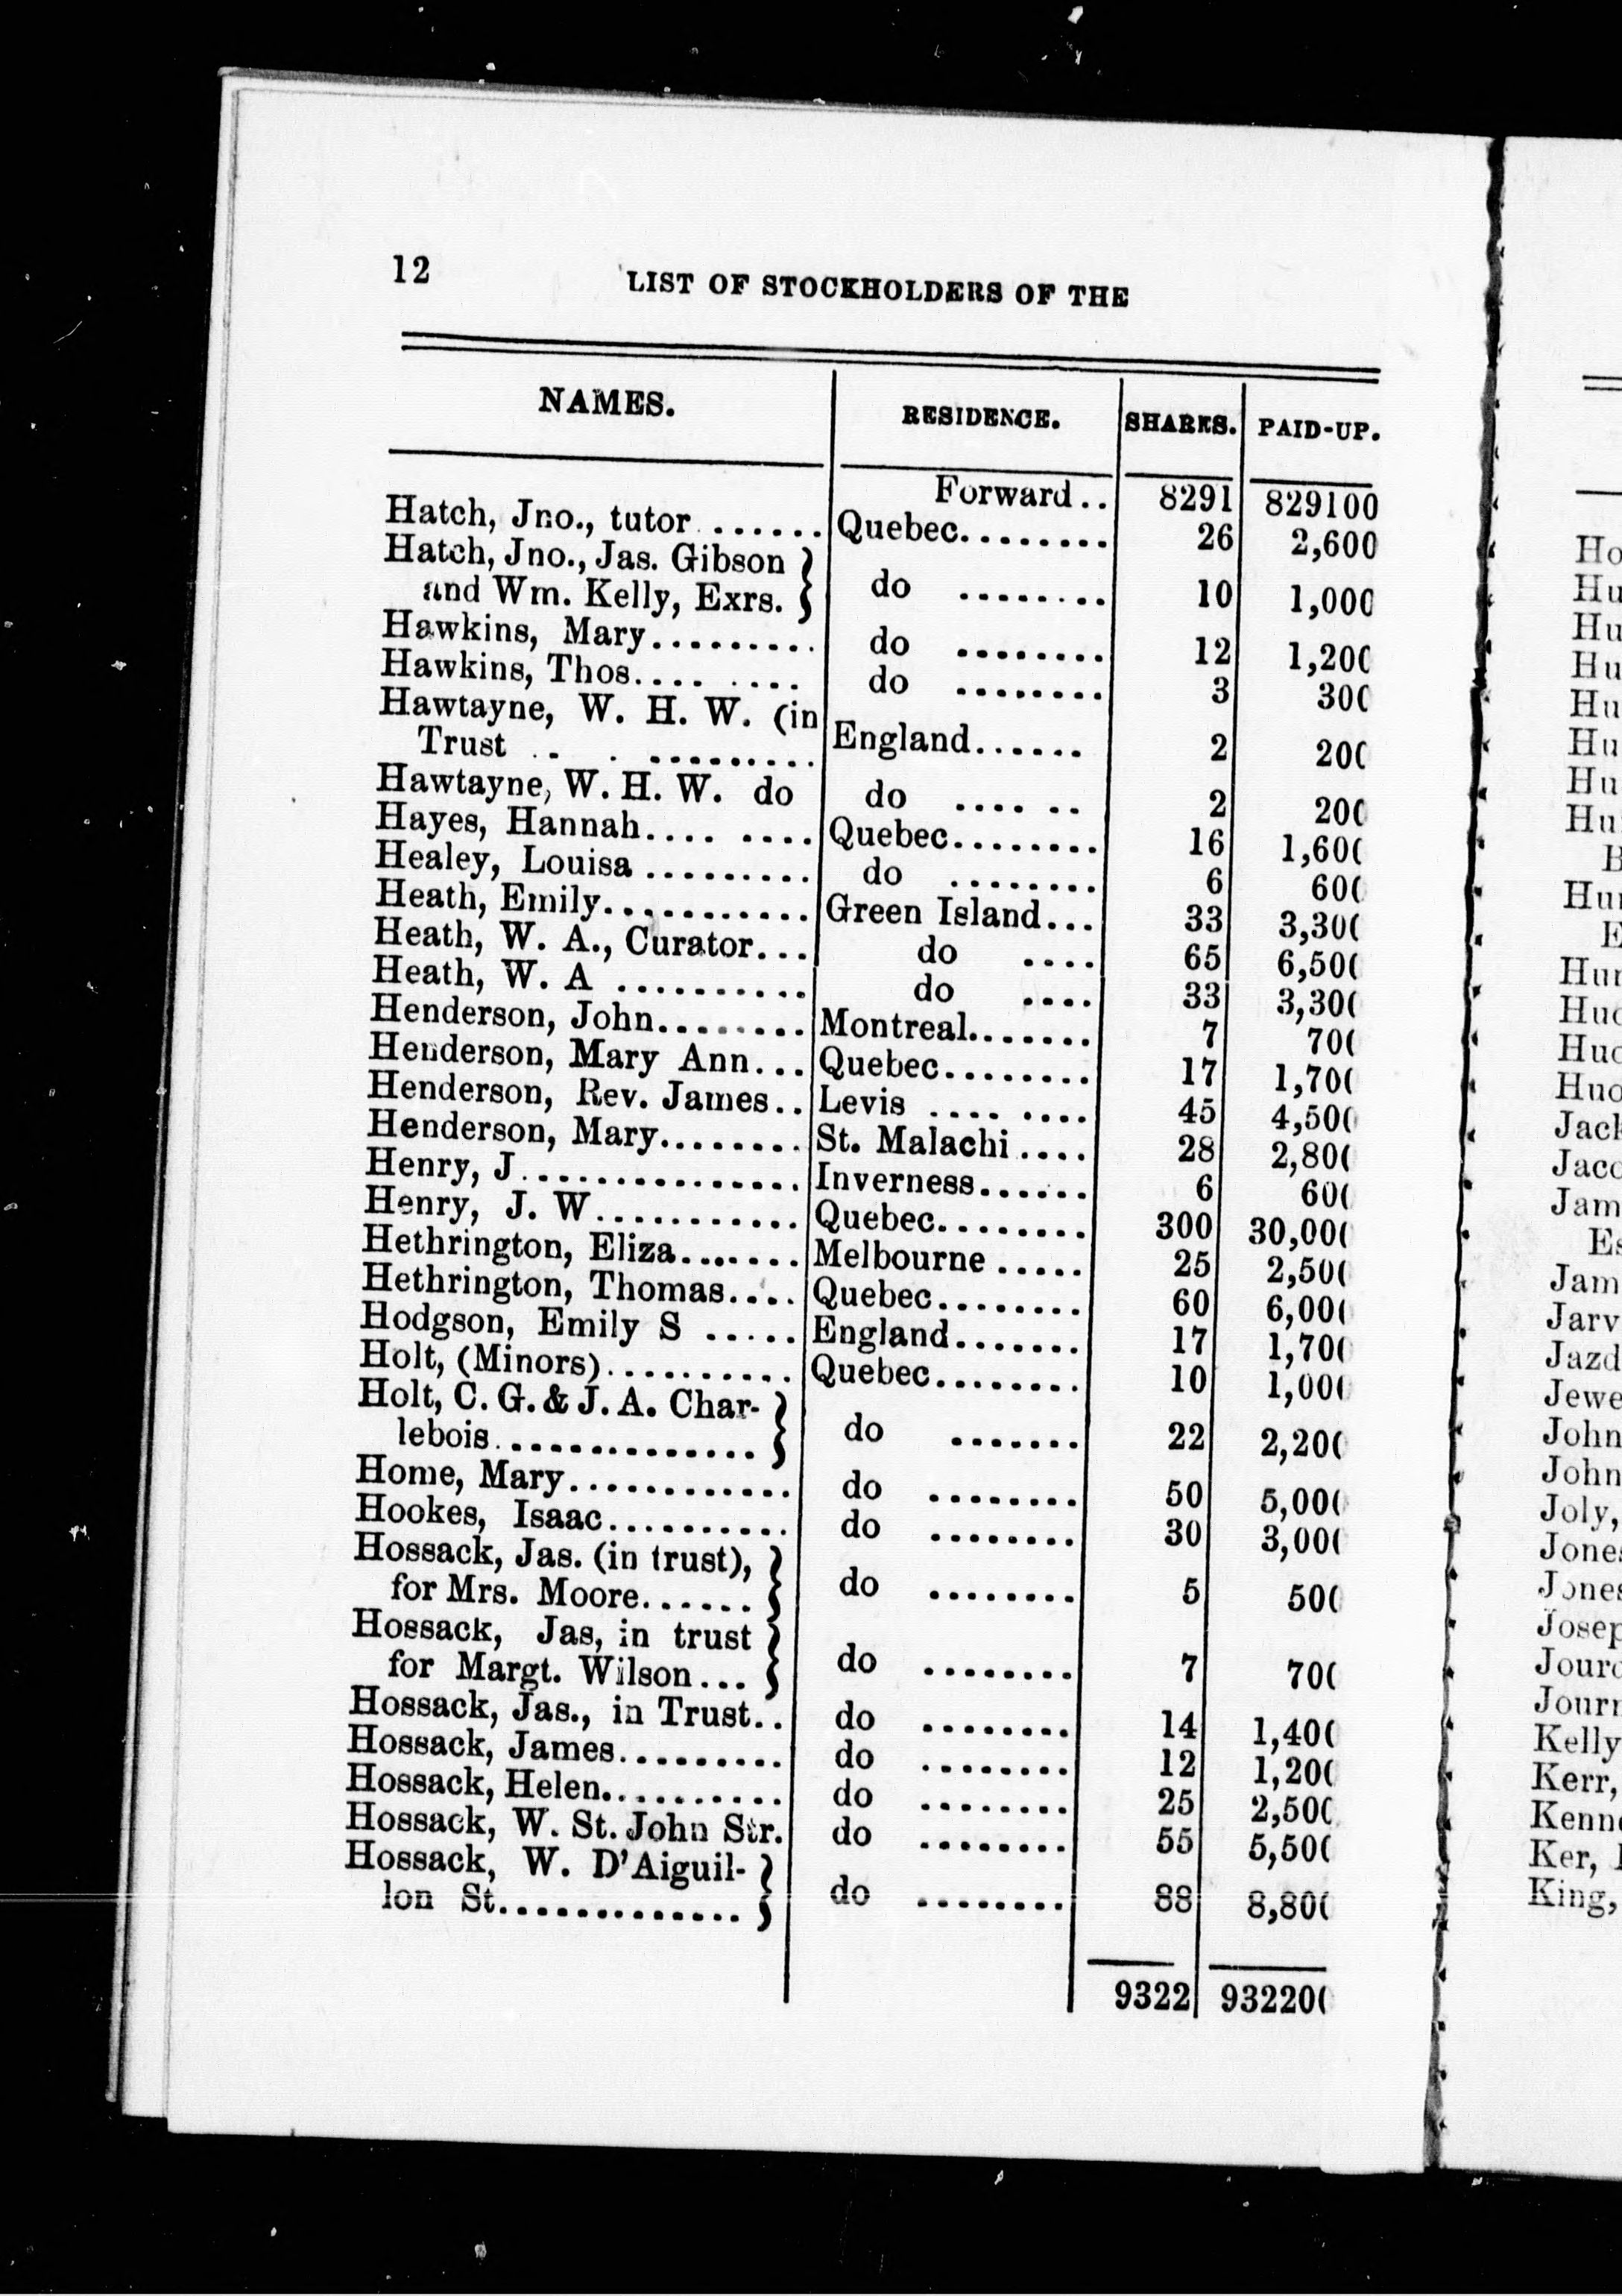 12
LIST OF STOCKHOLDERS OF THE
NAMES. RESIDENCE. SHARES. PAID-UP.
Forward.. 8291 829100
Hatch, Jno., tutor ...... Quebec........ 26 2,600
Hatch, Jno., Jas. Gibson
and Wm. Kelly, Exrs. } do ........ 10 1,000
Hawkins, Mary......... do ........ 12 1,200
Hawkins, Thos.... .... do ........ 3 300
Hawtayne, W. H. W. (in
Trust .. . ......... England...... 2 200
Hawtayne, W. H. W. do do .... .. 2 200
Hayes, Hannah.... .... Quebec........ 16 1,600
Healey, Louisa ......... do ........ 6 600
Heath, Emily........... Green Island... 33 3,300
Heath, W. A., Curator... do .... 65 6,500
Heath, W. A .......... do .... 33 3,300
Henderson, John........ Montreal....... 7 700
Henderson, Mary Ann... Quebec........ 17 1,700
Henderson, Rev. James.. Levis .... .... 45 4,500
Henderson, Mary........ St. Malachi .... 28 2,800
Henry, J............... Inverness...... 6 600
Henry, J. W........... Quebec........ 300 30,000
Hethrington, Eliza....... Melbourne ..... 25 2,500
Hethrington, Thomas.... Quebec........ 60 6,000
Hodgson, Emily S ..... England....... 17 1,700
Holt, (Minors).......... Quebec........ 10 1,000
Holt, C. G. & J. A. Char-
lebois.............. } do ....... 22 2,200
Home, Mary............ do ........ 50 5,000
Hookes, Isaac.......... do ........ 30 3,000
Hossack, Jas. (in trust),
for Mrs. Moore...... } do ........ 5 500
Hossack, Jas, in trust
for Margt. Wilson... } do ........ 7 700
Hossack, Jas., in Trust.. do ........ 14 1,400
Hossack, James......... do ........ 12 1,200
Hossack, Helen.......... do ........ 25 2,500
Hossack, W. St. John Str. do ........ 55 5,500
Hossack, W. D'Aiguil-
lon St............. } do ........ 88 8,800
9322 932200
Jack
Jam
Jam
Jarv
Jazd
Jewe
John
John
Joly,
Jones
Jones
Josep
Journ
Kelly
Kerr,
Ker,
King,